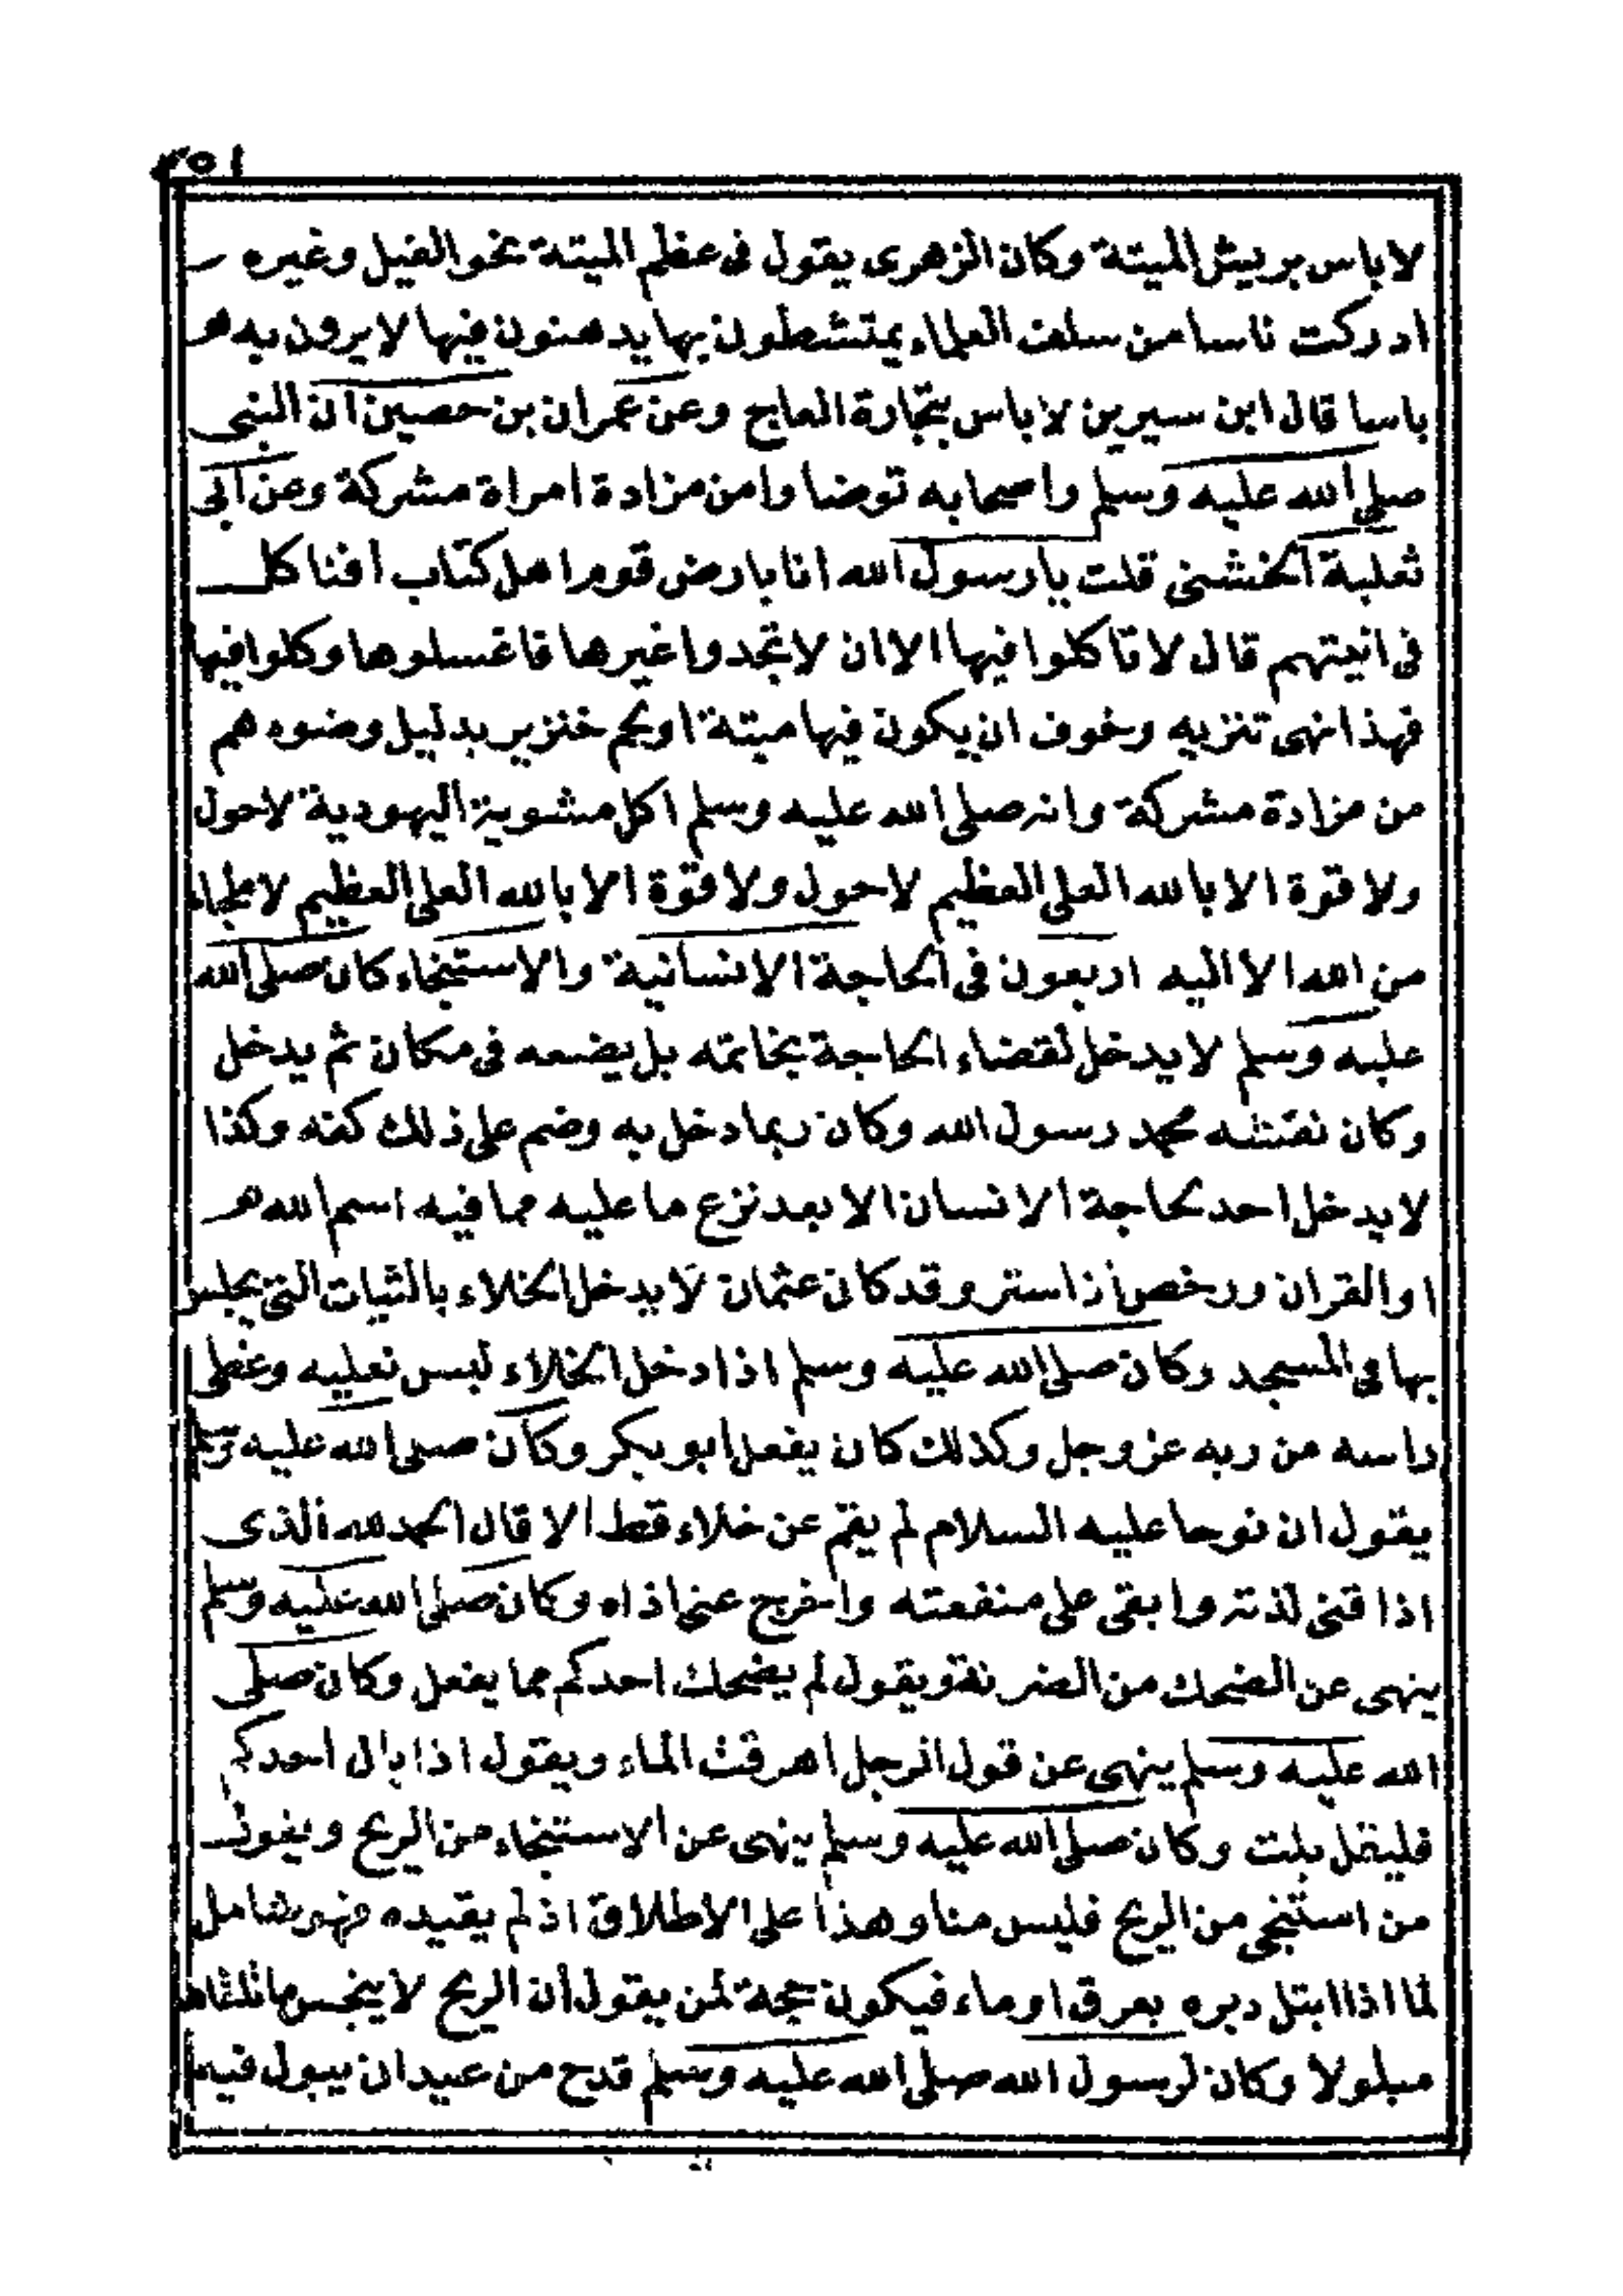 ٤٥١
لا باس بريش الميتة وكان الزهرى يقول فى عظم الميتة نحو الفيل وغيره
ادركت ناسا من سلف العلماء يمتشطون بها يدهنون فيها لا يرون به
باسا قال ابن سيرين لا باس بتجارة العاج وعن عمران بن حصين ان النبى
صلى الله عليه وسلم واصحابه توضا وا من مزادة امراة مشركة وعن ابى
ثعلبة الخشنى قلت يا رسول الله انا بارض قوم اهل كتاب افناكل
فى انيتهم قال لا تاكلوا فيها الا ان لا تجدوا غيرها فاغسلوها وكلوا فيها
فهذا نهى تنزيه وخوف ان يكون فيها ميتة او لحم خنزير بدليل وضوء هم
من مزادة مشركة وانه صلى الله عليه وسلم اكل مشوية اليهودية لا حول
ولا قوة الا بالله العلى العظيم لا حول ولا قوة الا بالله العلى العظيم لا ملجاء
من الله الا اليه اربعون فى الحاجة الانسانية والاستنجاء كان صلى الله
عليه وسلم لا يدخل لقضاء الحاجة بخاتمه بل يضعه فى مكان ثم يدخل
وكان نقشه محمد رسول الله وكان ربما دخل به وضم على ذلك كفه وكذا
لا يدخل احد لحاجة الانسان الا بعد نزع ما عليه مما فيه اسم الله
او القران ورخص اذا ستر وقد كان عثمان لا يدخل الخلاء بالثياب التى يجلس
بها فى المسجد وكان صلى الله عليه وسلم اذا دخل الخلاء لبس نعليه وغطى
راسه من ربه عز وجل وكذلك كان يفعل ابو بكر وكان صلى الله عليه وسلم
يقول ان نوحا عليه السلام لم يقم عن خلاء قط الا قال الحمد لله الذى
اذا قنى لذته وابقى على منفعته واخرج عنى اذاه وكان صلى الله عليه وسلم
ينهى عن الضحك من الضرطة ويقول لم يضحك احدكم مما يفعل وكان صلى
الله عليه وسلم ينهى عن قول الرجل اهرقت الماء ويقول اذا بال احدكم
فليقل بلت وكان صلى الله عليه وسلم ينهى عن الاستنجاء من الريح ويقول
من استنجى من الريح فليس منا وهذا على الاطلاق اذ لم يقيده فهو شامل
لما اذا ابتل دبره بعرق او ماء فيكون حجة لمن يقول ان الريح لا ينجس
مبلولا وكان لرسول الله صلى الله عليه وسلم قدح من عيدان يبول فيه